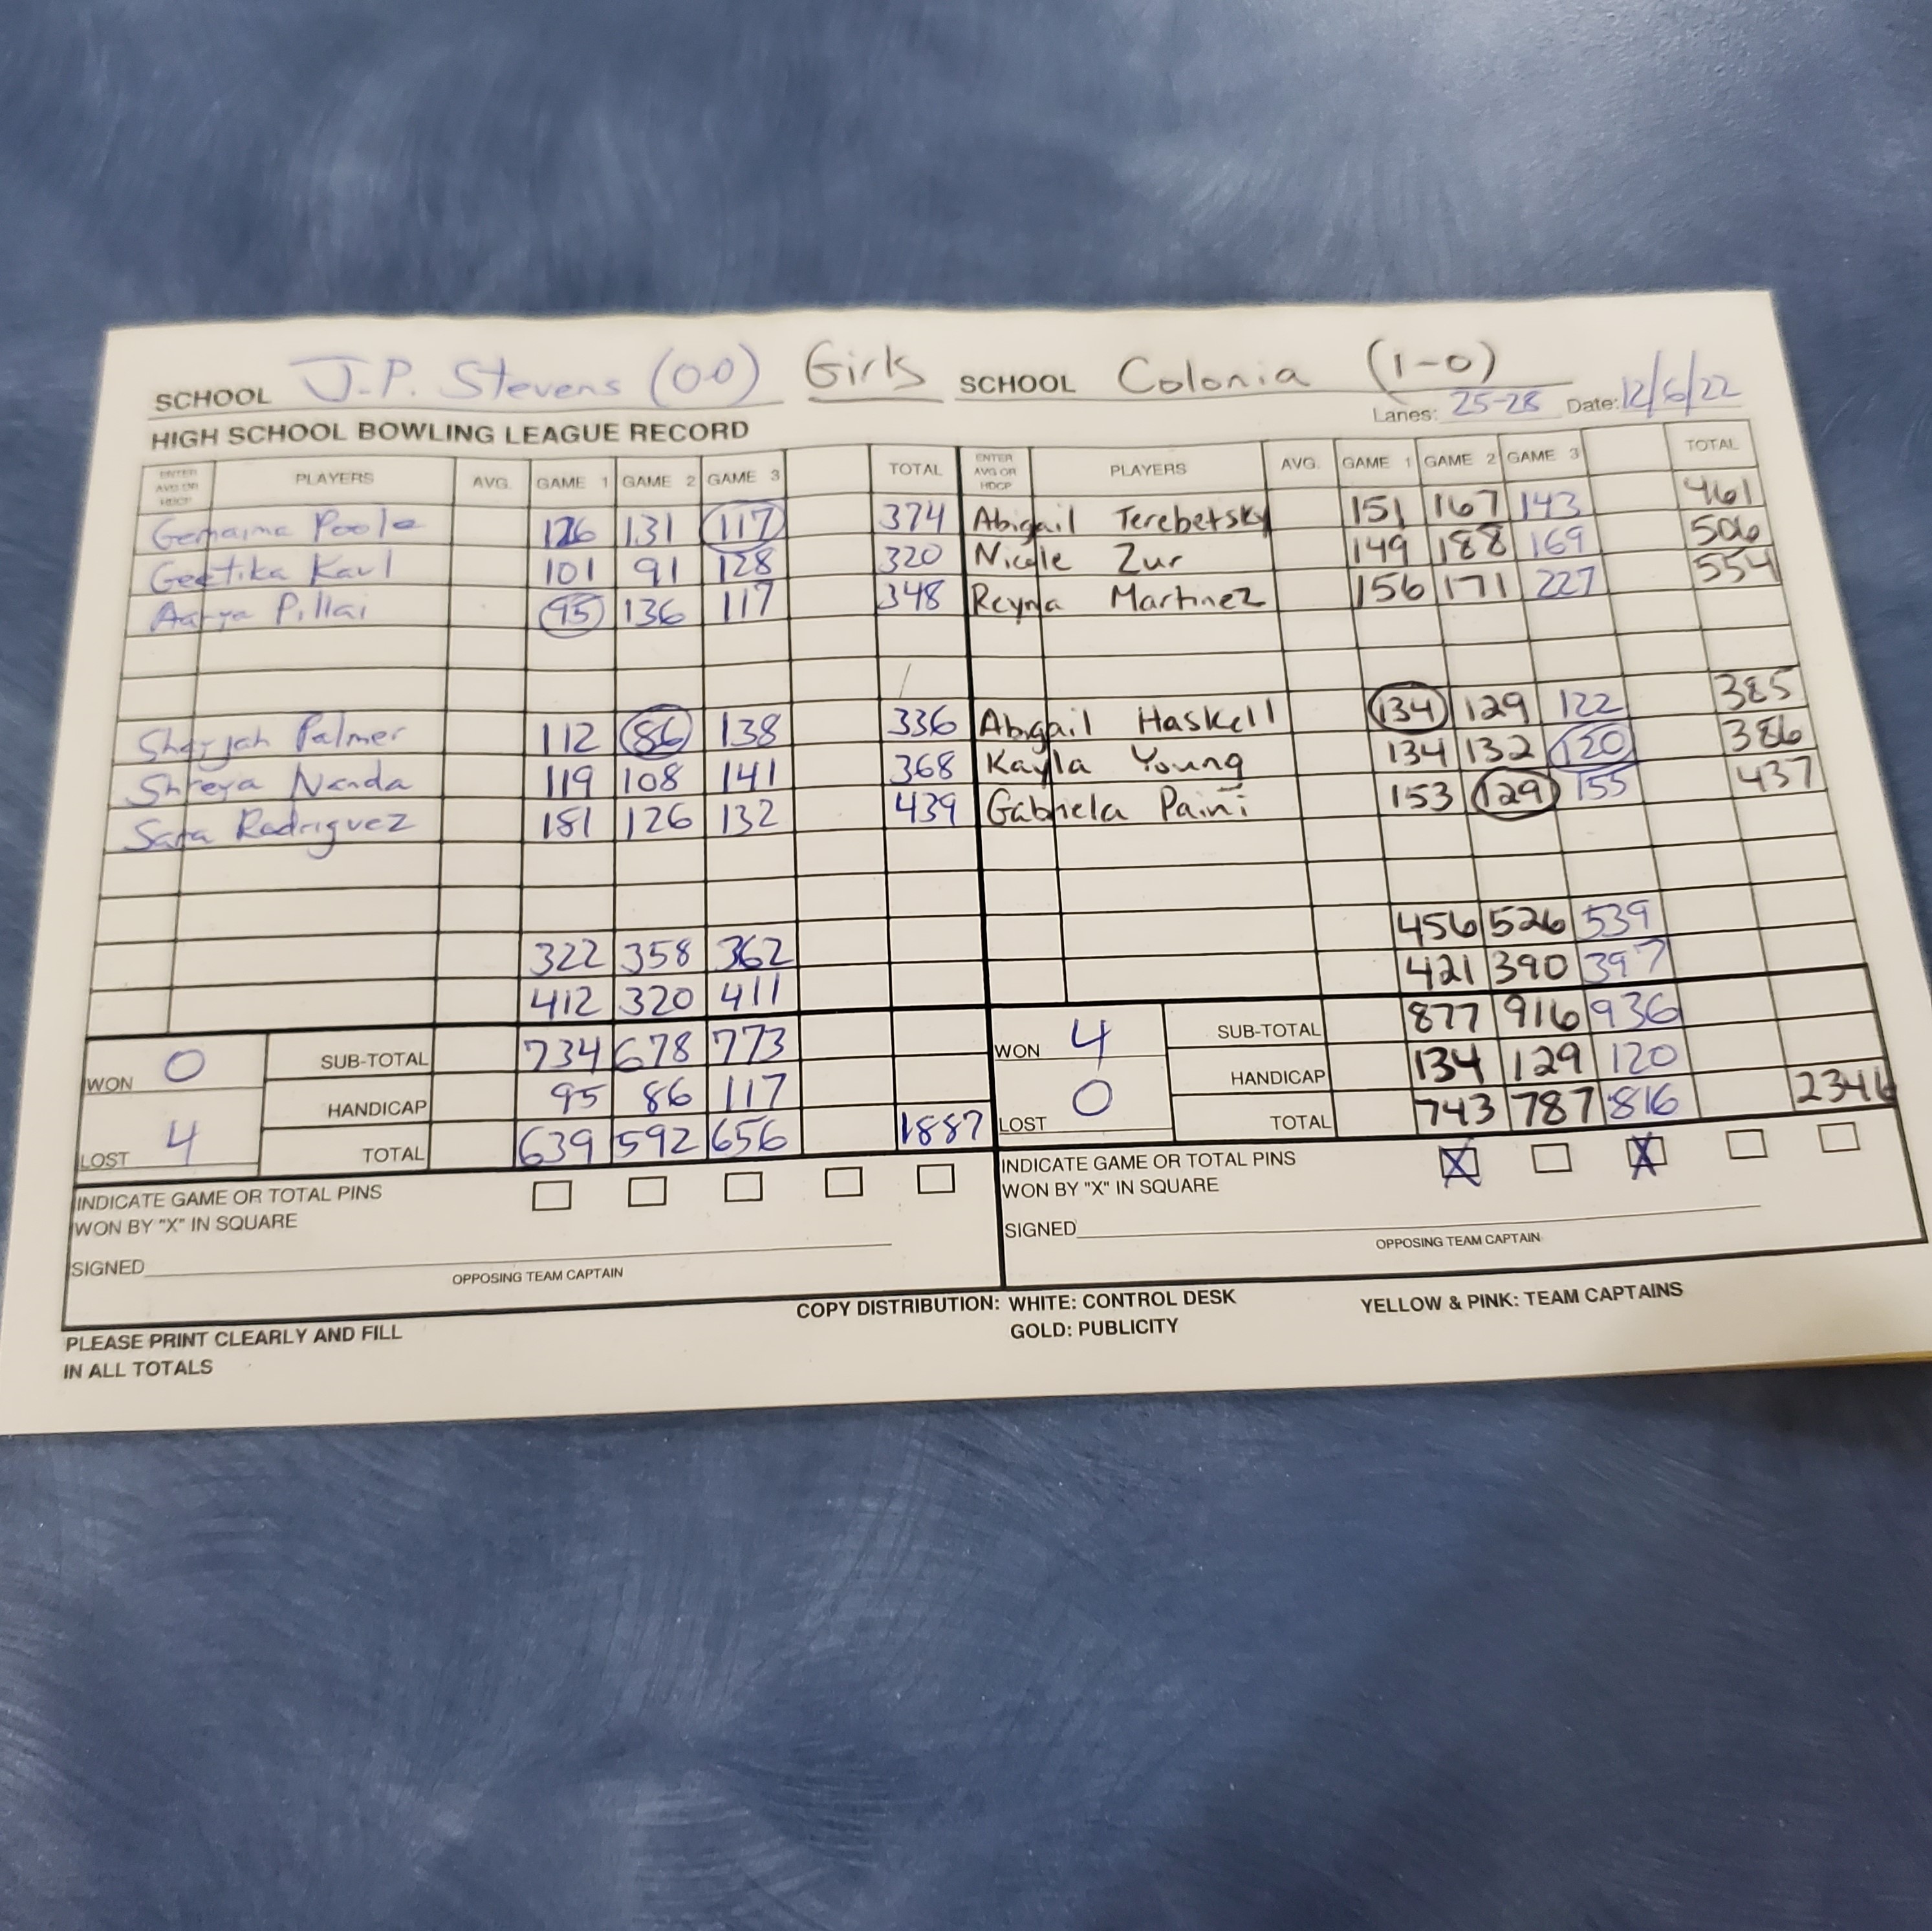 SCHOOL J.P. Stevens (0-0) Girls SCHOOL Colonia (1-0)
HIGH SCHOOL BOWLING LEAGUE RECORD Lanes: 25-28 Date: 12/6/22
ENTER AVG OR HDCP PLAYERS AVG. GAME 1 GAME 2 GAME 3 TOTAL ENTER AVG OR HDCP PLAYERS AVG. GAME 1 GAME 2 GAME 3 TOTAL
Gemaima Poole 126 131 117 374 Abigail Terebetsky 151 167 143 461
Geetika Kaul 101 91 128 320 Nicole Zur 149 188 169 506
Aarya Pillai 95 136 117 348 Reyna Martinez 156 171 227 554
Palmer 112 86 138 336 Abigail Haskell 134 129 122 385
Shreya Nanda 119 108 141 368 Kayla Young 134 132 120 386
Sara Rodriguez 181 126 132 439 Gabriela Paini 153 129 155 437
322 358 362 456 526 539
412 320 411 421 390 397
WON 0 SUB-TOTAL 734 678 773 WON 4 SUB-TOTAL 877 916 936
HANDICAP 95 86 117 HANDICAP 134 129 120
LOST 4 TOTAL 639 592 656 1887 LOST 0 TOTAL 743 787 816 2346
INDICATE GAME OR TOTAL PINS INDICATE GAME OR TOTAL PINS X X
WON BY "X" IN SQUARE WON BY "X" IN SQUARE
SIGNED SIGNED
OPPOSING TEAM CAPTAIN OPPOSING TEAM CAPTAIN
PLEASE PRINT CLEARLY AND FILL COPY DISTRIBUTION: WHITE: CONTROL DESK YELLOW & PINK: TEAM CAPTAINS
IN ALL TOTALS GOLD: PUBLICITY